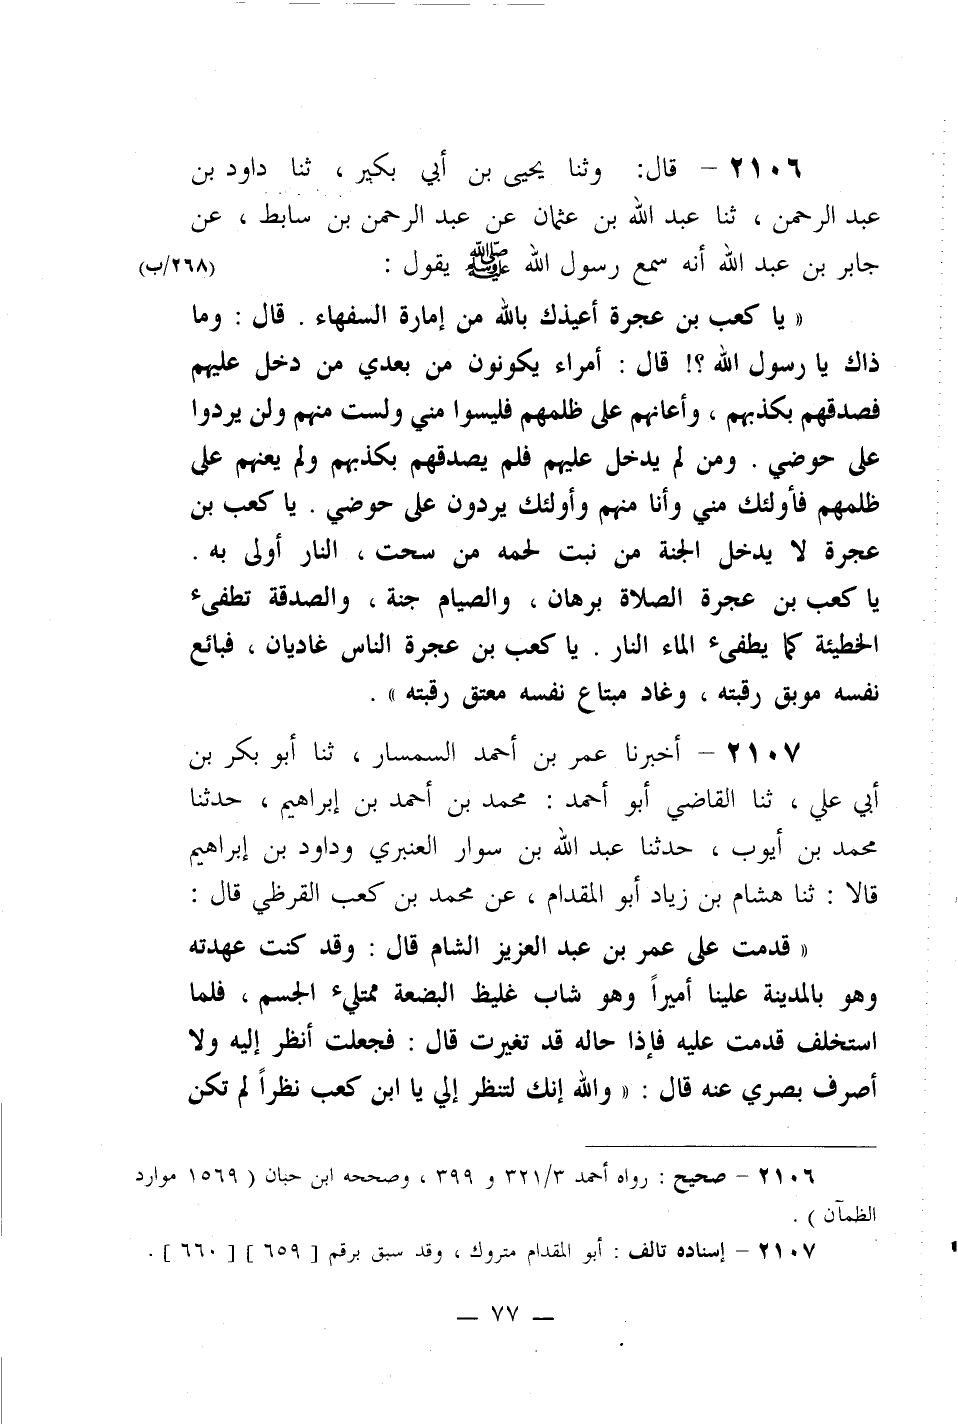 ٢١٠٦ – قال: وثنا يحيى بن أبي بكير ، ثنا داود بن
عبد الرحمن ، ثنا عبد الله بن عثمان عن عبد الرحمن بن سابط ، عن
جابر بن عبد الله أنه سمع رسول الله ﷺ يقول : (٢٦٨/ب)
« يا كعب بن عجرة أعيذك بالله من إمارة السفهاء . قال : وما
ذاك يا رسول الله ؟! قال : أمراء يكونون من بعدي من دخل عليهم
فصدقهم بكذبهم ، وأعانهم على ظلمهم فليسوا مني ولست منهم ولن يردوا
على حوضي . ومن لم يدخل عليهم فلم يصدقهم بكذبهم ولم يعنهم على
ظلمهم فأولئك مني وأنا منهم وأولئك يردون على حوضي . يا كعب بن
عجرة لا يدخل الجنة من نبت لحمه من سحت ، النار أولى به .
يا كعب بن عجرة الصلاة برهان ، والصيام جنة ، والصدقة تطفىء
الخطيئة كما يطفىء الماء النار . يا كعب بن عجرة الناس غاديان ، فبائع
نفسه موبق رقبته ، وغاد مبتاع نفسه معتق رقبته » .
٢١٠٧ – أخبرنا عمر بن أحمد السمسار ، ثنا أبو بكر بن
أبي علي ، ثنا القاضي أبو أحمد : محمد بن أحمد بن إبراهيم ، حدثنا
محمد بن أيوب ، حدثنا عبد الله بن سوار العنبري وداود بن إبراهيم
قالا : ثنا هشام بن زياد أبو المقدام ، عن محمد بن كعب القرظي قال :
« قدمت على عمر بن عبد العزيز الشام قال : وقد كنت عهدته
وهو بالمدينة علينا أميراً وهو شاب غليظ البضعة ممتلىء الجسم ، فلما
استخلف قدمت عليه فإذا حاله قد تغيرت قال : فجعلت أنظر إليه ولا
أصرف بصري عنه قال : « والله إنك لتنظر إلي يا ابن كعب نظراً لم تكن
٢١٠٦ – صحيح : رواه أحمد ٣٢١/٣ و ٣٩٩ ، وصححه ابن حبان ( ١٥٦٩ موارد
الظمآن ) .
٢١٠٧ – إسناده تالف : أبو المقدام متروك ، وقد سبق برقم [ ٦٥٩ ] [ ٦٦٠ ] .
— ٧٧ —